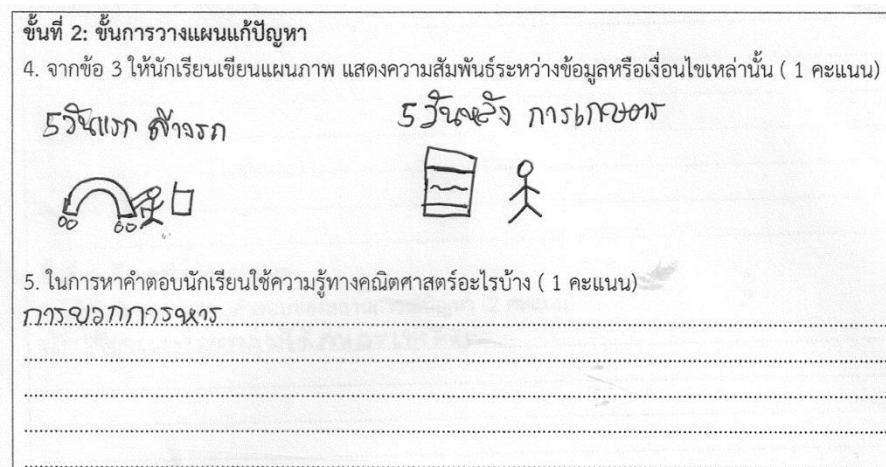 ขั้นที่ 2: ขั้นการวางแผนแก้ปัญหา
4. จากข้อ 3 ให้นักเรียนเขียนแผนภาพ แสดงความสัมพันธ์ระหว่างข้อมูลหรือเงื่อนไขเหล่านั้น ( 1 คะแนน)
5วันแรก ล้างรถ
5วันหลัง การเกษตร
5. ในการหาคำตอบนักเรียนใช้ความรู้ทางคณิตศาสตร์อะไรบ้าง ( 1 คะแนน)
การบวกการหาร